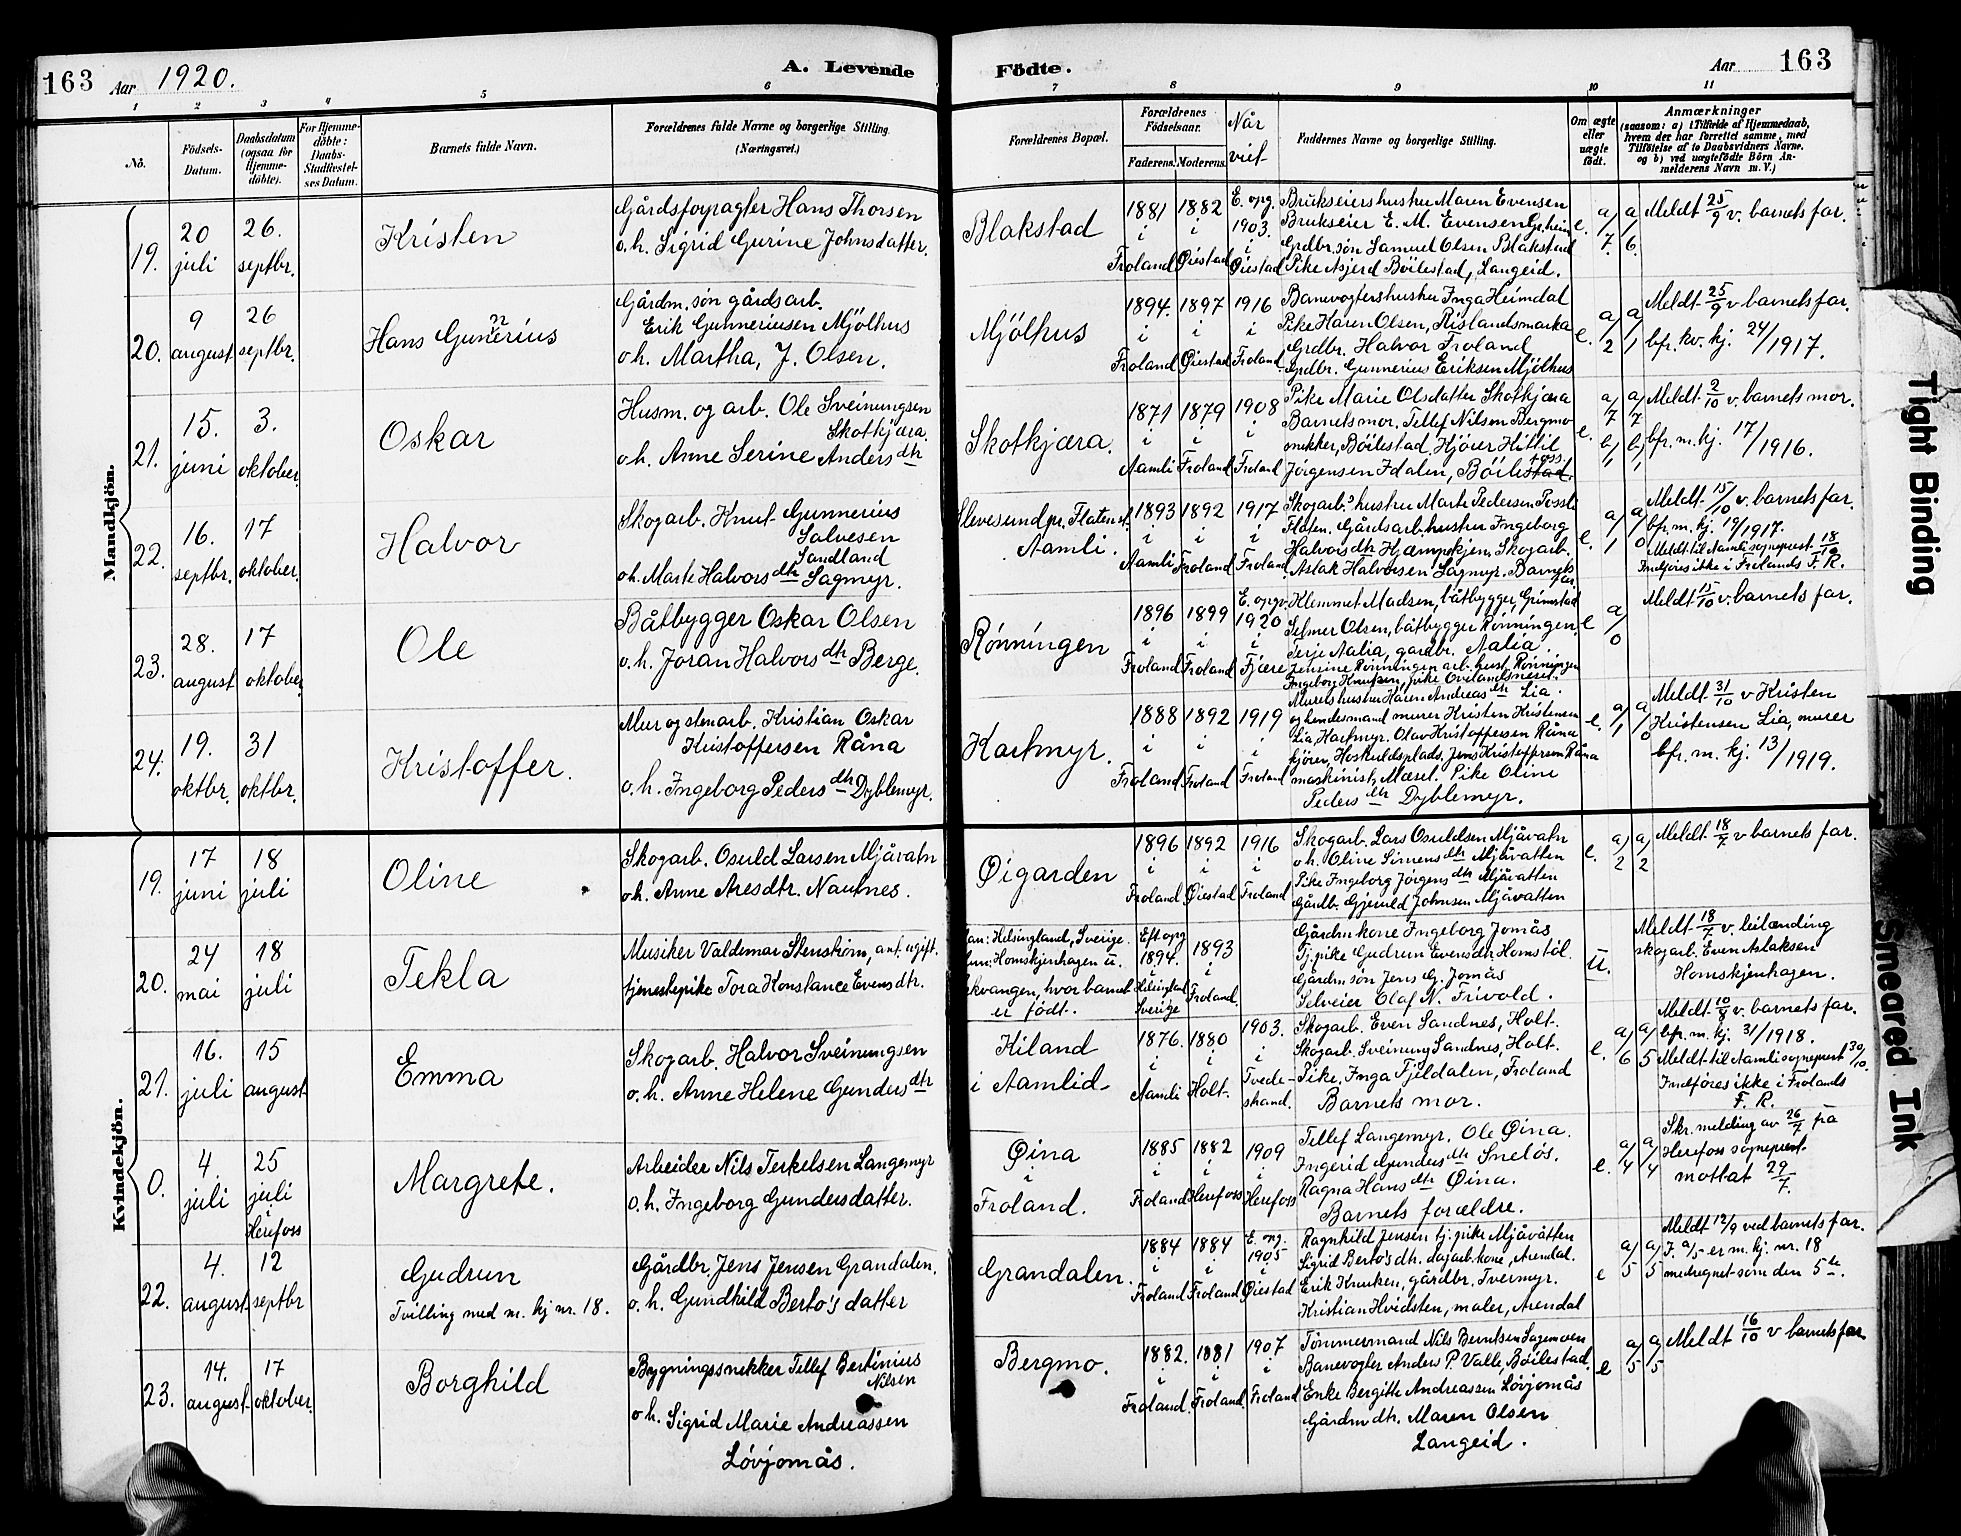 163 Aar 1920. A. Levende Födte. Aar 163
1 2 3 4 5 6 7 8 9 10 11
No.
Födsels-Datum.
Daabsdatum (ogsaa for Hjemme-döbte).
For Hjemme-döbte: Daabs-Stadfæstel-ses Datum.
Barnets fulde Navn.
Forældrenes fulde Navne og borgerlige Stilling.
(Næringsvei.)
Forældrenes Bopæl.
Forældrenes Födselsaar.
Faderens. Moderens.
Når viet
Faddernes Navne og borgerlige Stilling.
Om ægte eller uægte födt.
Anmærkninger
(saasom: a) i Tilfælde af Hjemmedaab, hvem der har forrettet samme, med Tilföielse af to Daabsvidners Navne. og b) ved uægtefödte Börn An-melderens Navn m. V.)
Mandkjön.
19.
20 juli
26. septbr.
Kristen
Gårdsforpagter Hans Thorsen
o.h. Sigrid Gurine Johnsdatter.
Blakstad
1881 i Froland
1882 i Øiestad
E. opg. 1903. i Øiestad
Brukseiers hustru Maren Evensen
Brukseier E. M. Evensen
Grdbr. søn Samuel Olsen Blakstad
Pike Asjerd Bøilestad, Langeid.
e.
a/7. a/6.
Meldt 25/9 v. barnets far.
20.
9 august
26 septbr.
Hans Gunnerius
Gårdm. søn gårdsarb.
Erik Gunneriusen Mjölhus
o h. Martha, J. Olsen.
Mjölhus
1894. i Froland
1897 i Øiestad
1916 i Froland
Banevogtershustru Inga Heimdal
Pike Karen Olsen, Rislandsmarka
Grdbr. Halvor Froland
Grdbr. Gunnerius Eriksen Mjölhus
e.
a/2 a/1
Meldt 25/9 v barnets far.
bfr. kv. kj. 24/1917.
21.
15. juni
3. oktober.
Oskar
Husm. og arb. Ole Sveinungsen
Skotkjæra.
o h. Anne Serine Andersdtr
Skotkjæra.
1871 i Aamli
1879 i Froland
1908 i Froland
Pike Marie Olsdatter Skotkjæra
Barnets mor. Tellef Nilsen Bergmo
snekker, Bøilestad. Kjører Kittil
Jørgensen Idalen, Bøiles
e.
a/7 a/7
b/1 b/1
Meldt 2/10 v. barnets mor.
bfr. m. kj. 17/1916.
22.
16. septbr.
17 oktober.
Halvor
Skogarb. Knut Gunnerius
Salvesen
Sandland
o h. Marte Halvorsdtr Sagmyr.
Slevesund pr. Flaten st.
Aamli.
1893 i Aamli
1892 i Froland
1917 i Froland
Skogarb.s hustru Marte Pedersen Tosslt
Flaten. Gårdsarb. hustru Ingeborg
Halvorsdtr Kjæmpekjen, Skogarb.
Aslak Halvorsen Sagmyr. Barnets
far
e.
a/1 a/0
Meldt 15/10 v. barnets far.
bfr. m. kj. 19/1917.
Meldt til Aamli sogneprest 18/10
Indføres ikke i Frolands F. R.
23.
28. august
17 oktober
Ole
Båtbygger Oskar Olsen
o. h. Joran Halvorsdtr Berge.
Rønningen
1896 i Froland
1899 i Froland
E. opgv. 1920 i Fjære
Klemmet Madsen, båtbygger, Grimstad
Selmer Olsen, båtbygger Rønningen.
Terje Aalia, gardbr. Aalia.
Jensine Rønningen arb. hust. Rønningen
Ingeborg Knutsen, pike Ovelandsneset.
e
a/0
Meldt 15/10 v. barnets far.
24.
19. oktbr.
31 oktbr.
Kristoffer.
Mur og stenarb. Kristian Oskar
Kristoffersen Råna
o. h. Ingeborg Pedersdtr Dyblemyr.
Kartmyr.
1888 i Froland
1892 i Froland
1919 i Froland
Murers hustru Karen Andreasdtr Lia.
og hendes mand murer Kristen Kristensen
Lia, Hartmyr. Olav Kristoffersen Råna
kjörer, Heskuldsplads. Jens Kristoffersen Råna
maskinist, Mæsel. Pike Oline
Pedersdtr Dyblemyr.
e.
a/1 a/0
Meldt 31/10 v Kristen
Kristensen Lia, murer
bfr. m. kj. 13/1919.
Kvindekjön.
19.
17 juni
18 juli
Oline
Skogarb. Osuld Larsen Mjåvatn
o h. Anne Aresdtr. Nautnes.
Øigarden
1896 i Froland
1892 i Øiestad
1916 i Froland
Skogarb. Lars Osuldsen Mjåvatn
o h. Oline Simensdtr Mjåvatten
Pike Ingeborg Jörgensdtr Mjåvatten
Gårdb. Gjeruld Johnsen Mjåvatten
e.
a/2 a/2
Meldt 18/7 v barnets far.
20.
24 mai
18 juli
Tekla
Musiker Valdemar Stenström, ant. ugift.
tjenestepike Tora Konstance Evensdtr.
an: Helsingland, Sverige.
un: Homskjenhagen u.
kvangen, hvor barnet
er født.
Eft opg 1894. i Helsingland Sverige
1893 i Froland.
Gårdm kone Ingeborg Jomås
Tj. pike Gudrun Evensdtr Homstöl.
Gårdm søn Jens G. Jomås
Selveier Olaf N. Trivold.
U.
Meldt 18/7 v. leilænding
skogarb. Even Aslaksen
Homskjenhagen.
21.
16. juli
15 august
Emma
Skogarb. Halvor Sveinungsen
o. h. Anne Helene Gundersdtr
Kiland
i Aamlid
1876. i Aamli
1880 i Holt.
1903. i Tvede-strand.
Skogarb. Even Sandnes, Holt.
Skogarb. Sveinung Sandnes, Holt.
Pike. Inga Fjeldalen, Froland
Barnets mor.
e.
a/6 a/5
Meldt 10/8 v. barnets far.
bfr. m. kj. 31/1918.
Meldt til Aamli sogneprest 30/10.
Indføres ikke i Frolands
F. R.
0.
4. juli
25 juli i Herefoss
Margrete.
Arbeider Nils Terkelsen Langemyr
o. h. Ingeborg Gundersdatter.
Øina
i
Froland.
1885 i Froland
1882 i Herefoss
1909 i Herefoss
Tellef Langemyr. Ole Øina.
Ingerid Gundersdtr Sneløs.
Ragna Hansdtr Øina.
Barnets forældre.
e.
a/4 a/4
Skr. melding av 26/7 fra
Herefoss sogneprest.
mottat 29/7.
22.
4. august
12 septbr
Gudrun
Tvilling med m. kj nr. 18.
Gårdbr. Jens Jensen Grandalen.
o. h. Gundhild Berto's datter
Grandalen.
1884 i Froland
1884 i Froland
E. opg. 1905 i Øiestad
Ragnhild Jensen tj. pike Mjåvatten
Sigrid Berto's dtr. dagarb. kone, Arendal.
Erik Knutsen, gårdbr. Tvermyr.
Kristian Hvidsten, maler, Arendal
e
a/5 a/5
Meldt 12/9 ved barnets far.
I. a/5 er m. kj. nr. 18
medregnet som den 5te.
23.
14. august
17 oktober.
Borghild
Bygningssnekker Tellef Bertinius
Nilsen
o h. Sigrid Marie Andreassen
Løvjomås.
Bergmo.
1882. i Froland.
1881 i Froland.
1907 i Froland
Tømmermand Nils Berntsen Sagemoen
Banevogter Anders P. Valle, Bøilestad.
Enke Bergitte Andreassen Løvjomås
Gårdm dtr. Maren Olsen
Langeid.
e
a/5 a/5
Meldt 16/10 v barnets far
Tight Binding
Smeared Ink